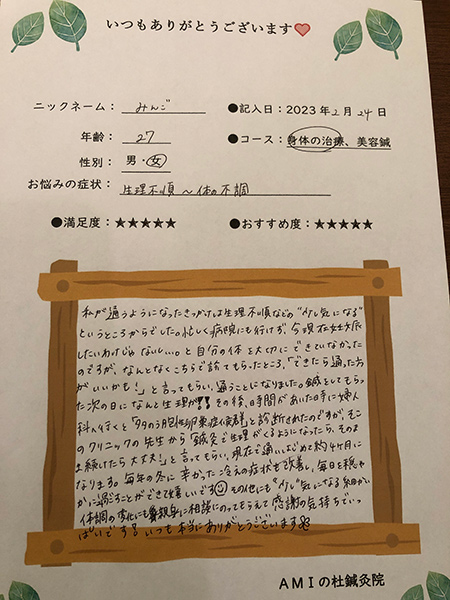 いつもありがとうございます
ニックネーム： みんご
●記入日：2023年2月24日
年齢： 27
●コース：身体の治療、美容鍼
性別： 男・女
お悩みの症状： 生理不順～体の不調
●満足度：★★★★★ ●おすすめ度：★★★★★
私が通うようになったきっかけは生理不順などの"少し気になる"
というところからでした。忙しく病院にも行けず今現在妊娠
したいわけじゃないしい。と自分の体を大切にできていなかった
のですが、なんとなくこちらで診てもらったところ、「できたら通った方
がいいかも！」と言ってもらい通うことになりました。鍼をしてもらっ
た次の日になんと生理が!! その後、時間があいた日等に婦人
科へ行くと「多のう胞性卵巣症候群」と診断されたのですが、そこ
のクリニックの先生から「鍼灸で生理がくるようになったら、そのま
ま続けたら大丈夫！」と言ってもらい、現在で通いはじめて約4ヶ月に
なります。毎年の冬に辛かった冷えの症状も改善。毎日を穏や
かに過ごすことができて嬉しいです その他にも"少し"気になる細かい
体調の変化にも親身に相談にのってもらえて感謝の気持ちでいっ
ぱいです！いつも本当にありがとうございます
AMIの杜鍼灸院